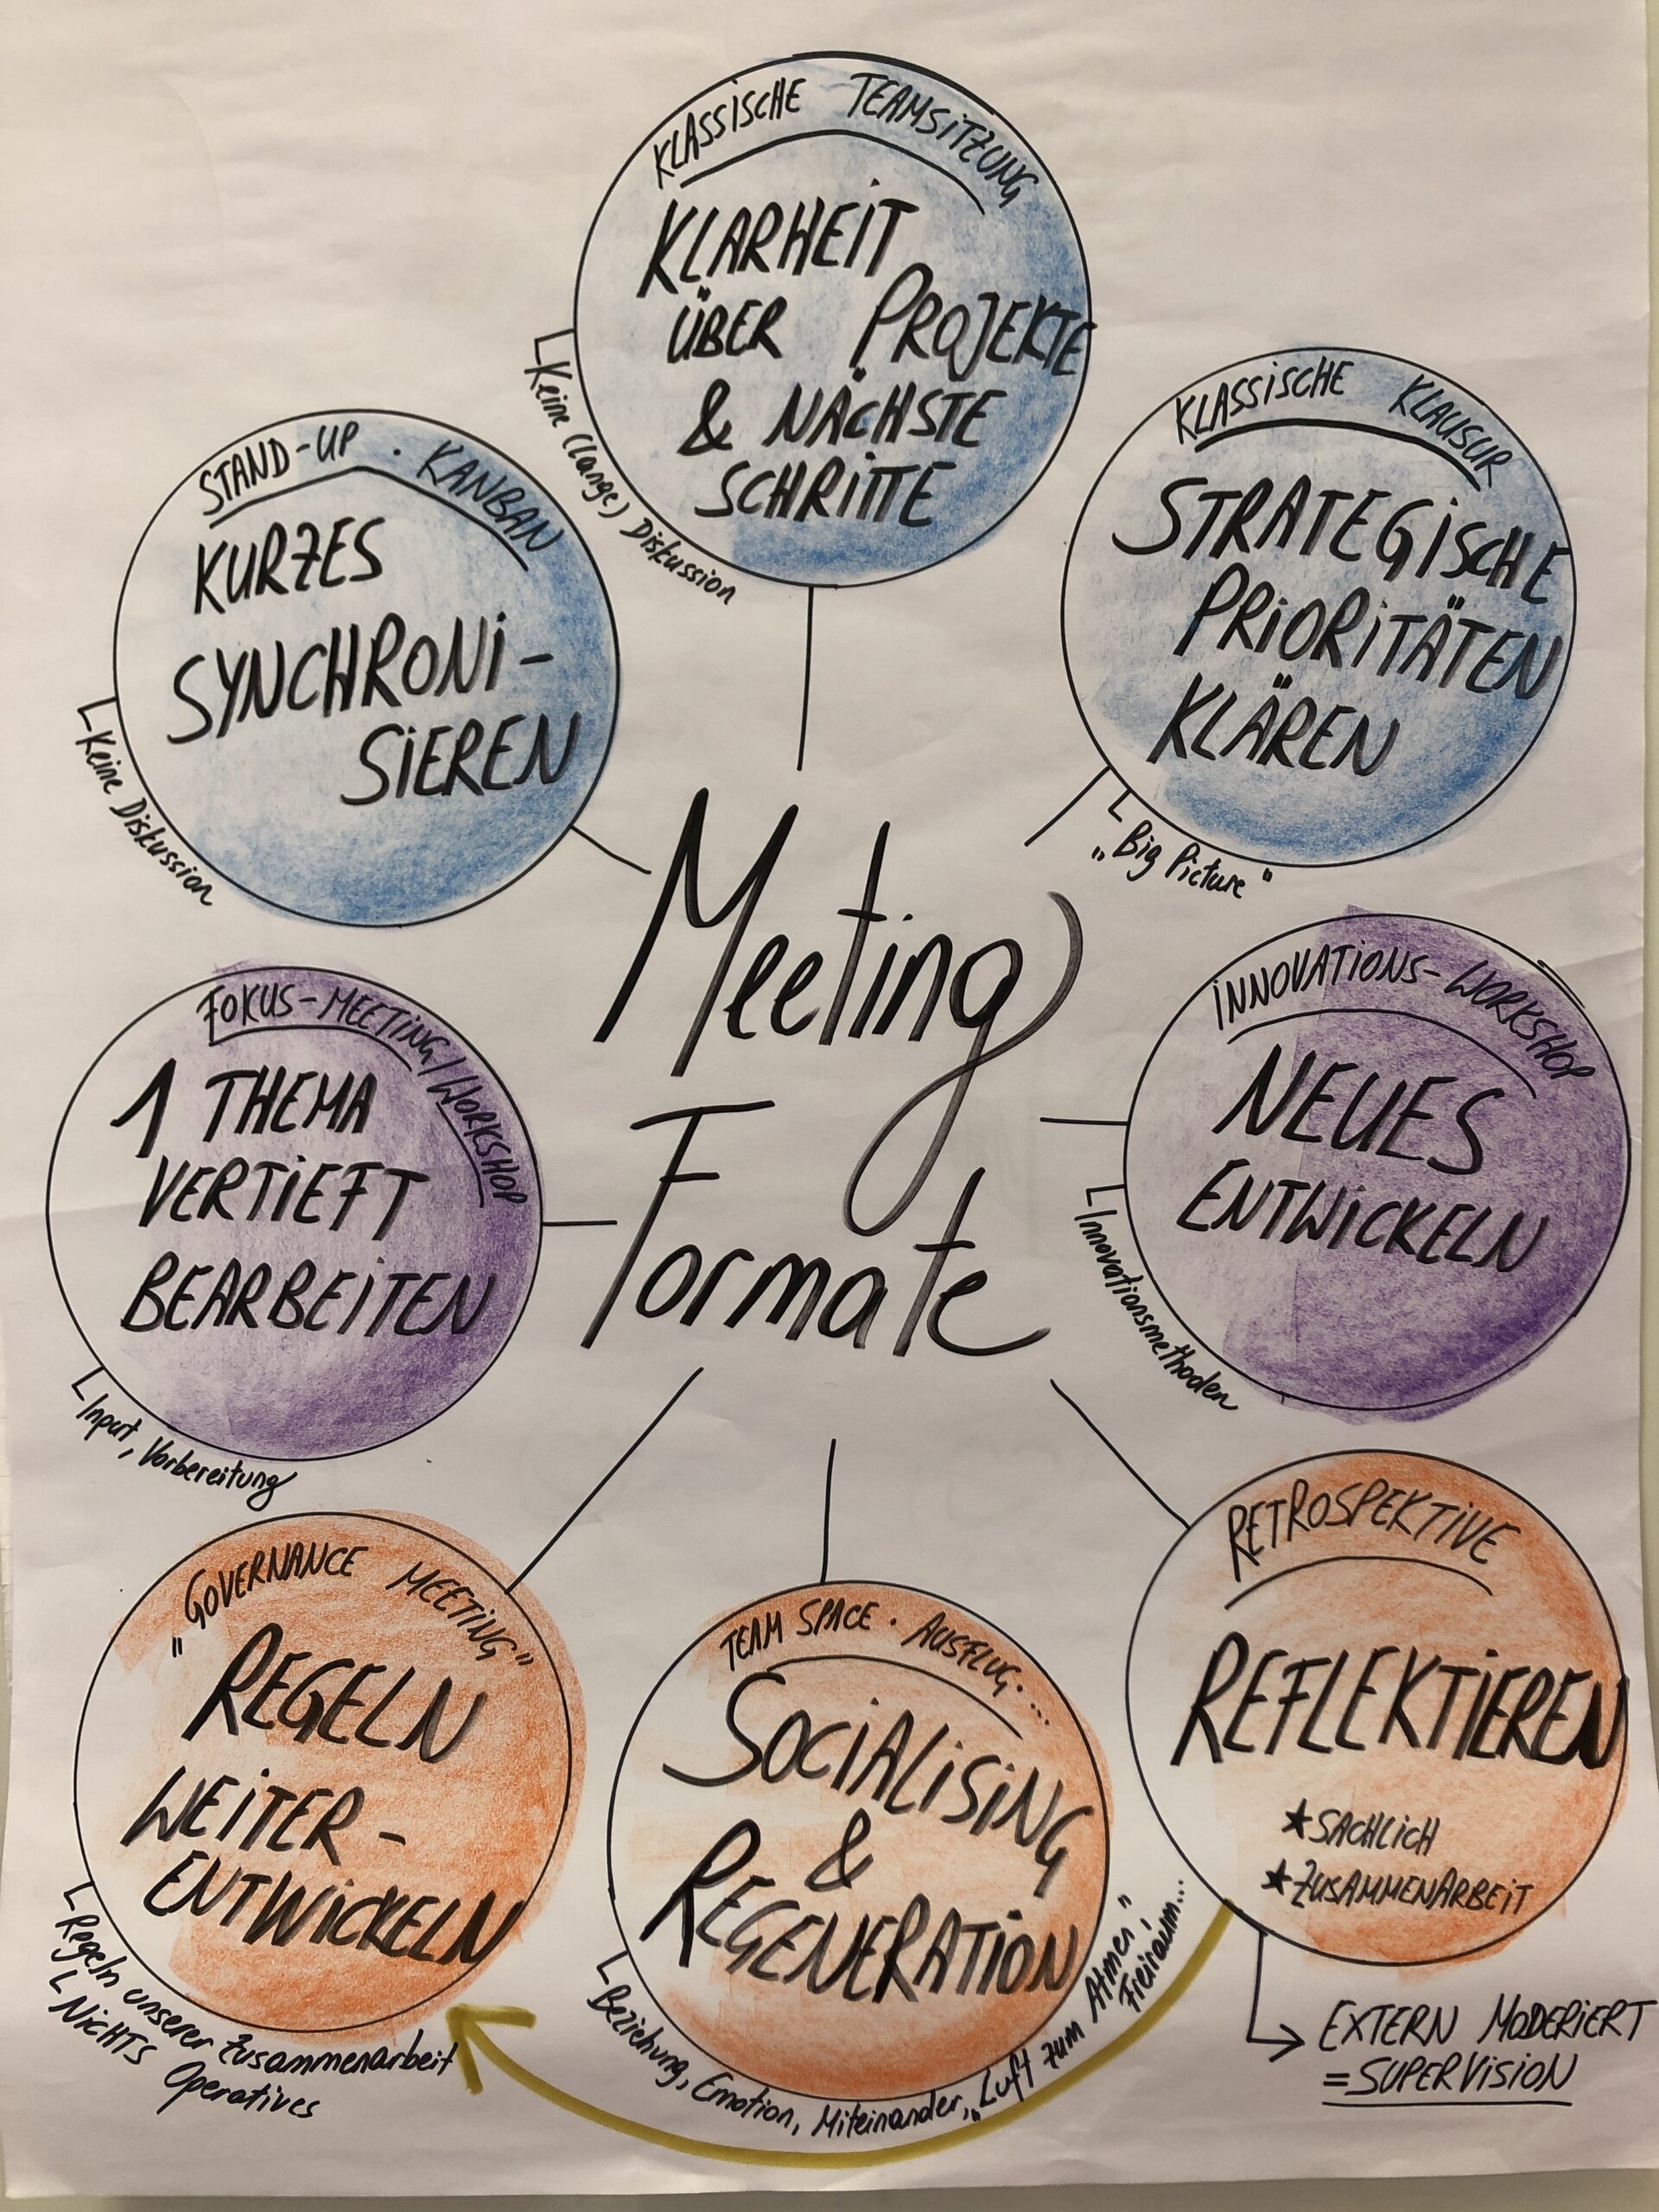 KLASSISCHE TEAMSITZUNG
KLARHEIT
ÜBER PROJEKTE
& NÄCHSTE
SCHRITTE
Keine (lange) Diskussion
STAND-UP · KANBAN
KURZES
SYNCHRONI-
SIEREN
Keine Diskussion
KLASSISCHE KLAUSUR
STRATEGISCHE
PRIORITÄTEN
KLÄREN
„Big Picture"
Meeting
Formate
FOKUS-MEETING/WORKSHOP
1 THEMA
VERTIEFT
BEARBEITEN
Input, Vorbereitung
INNOVATIONS-WORKSHOP
NEUES
ENTWICKELN
Innovationsmethoden
„GOVERNANCE MEETING"
REGELN
WEITER-
ENTWICKELN
Regeln unserer Zusammenarbeit
NICHTS Operatives
TEAM SPACE · AUSFLUG·....
SOCIALISING
&
REGENERATION
Beziehung, Emotion, Miteinander, „Luft zum Atmen",
Freiraum...
RETROSPEKTIVE
REFLEKTIEREN
★ SACHLICH
★ ZUSAMMENARBEIT
EXTERN MODERIERT
= SUPERVISION